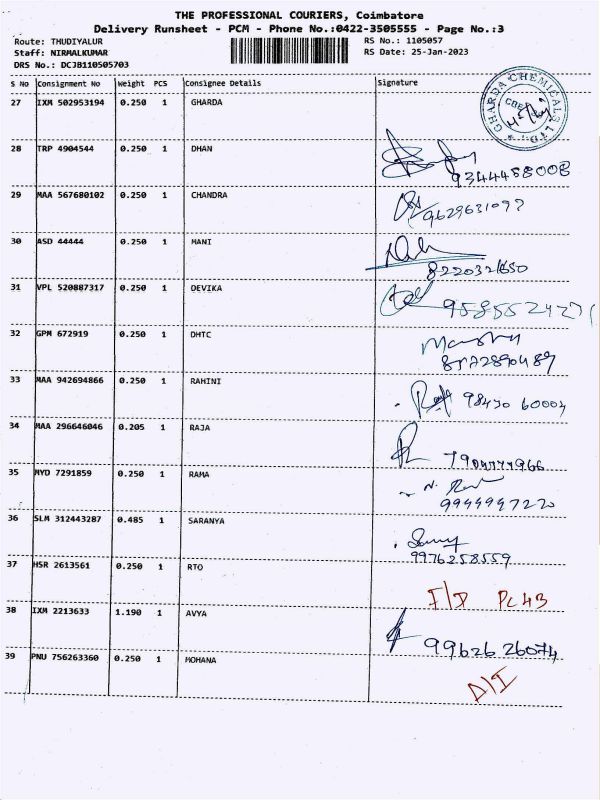 THE PROFESSIONAL COURIERS, Coimbatore
Delivery Runsheet - PCM - Phone No.:0422-3505555 - Page No.:3
Route: THUDIYALUR RS No.: 1105057
Staff: NIRMALKUMAR RS Date: 25-Jan-2023
DRS No.: DCJB110505703
S No Consignment No Weight PCS Consignee Details Signature
27 IXM 502953194 0.250 1 GHARDA
GHARDA CHEMICALS LTD
28 TRP 4904544 0.250 1 DHAN
9344488008
29 MAA 567680102 0.250 1 CHANDRA
30 ASD 44444 0.250 1 MANI
31 VPL 520887317 0.250 1 DEVIKA
32 GPM 672919 0.250 1 DHTC
33 MAA 942694866 0.250 1 RAHINI
98430 60004
34 MAA 296646046 0.205 1 RAJA
35 MYD 7291859 0.250 1 RAMA
36 SLM 312443287 0.485 1 SARANYA
9976258559
37 HSR 2613561 0.250 1 RTO
38 IXM 2213633 1.190 1 AVYA
99626 26074
39 PNU 756263360 0.250 1 MOHANA